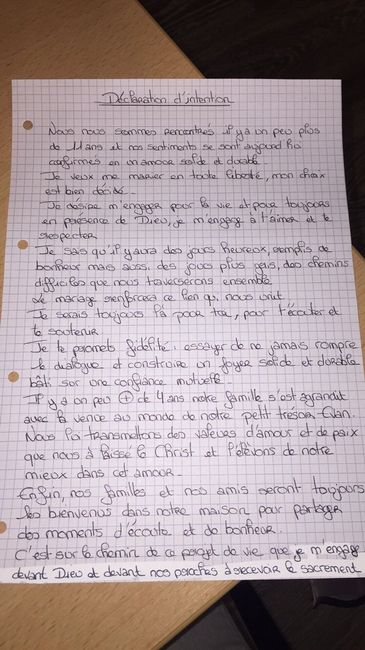 Déclaration d'intention
Nous nous sommes rencontrés il y a un peu plus
de 11 ans et nos sentiments se sont aujourd'hui
confirmés en un amour solide et durable.
Je veux me marier en toute liberté, mon choix
est bien décidé.
Je désire m'engager pour la vie et pour toujours
en présence de Dieu, je m'engage à t'aimer et te
respecter
Je sais qu'il y aura des jours heureux, remplis de
bonheur mais aussi, des jours plus gris, des chemins
difficiles que nous traverserons ensemble
Le mariage renforcera ce lien qui nous unit.
Je serais toujours là pour toi, pour t'écouter et
te soutenir
Je te promets fidélité, essayer de ne jamais rompre
le dialogue et construire un foyer solide et durable
bâti sur une confiance mutuelle.
Il y a un peu + de 4 ans notre famille s'est agrandit
avec la venue au monde de notre petit trésor
Nous lui transmettons des valeurs d'amour et de paix
que nous à laissé le Christ et l'élevons de notre
mieux dans cet amour.
Enfin, nos familles et nos amis seront toujours
les bienvenus dans notre maison pour partager
des moments d'écoute et de bonheur.
C'est sur le chemin de ce projet de vie que je m'engage
devant Dieu et devant nos proches à recevoir le sacrement